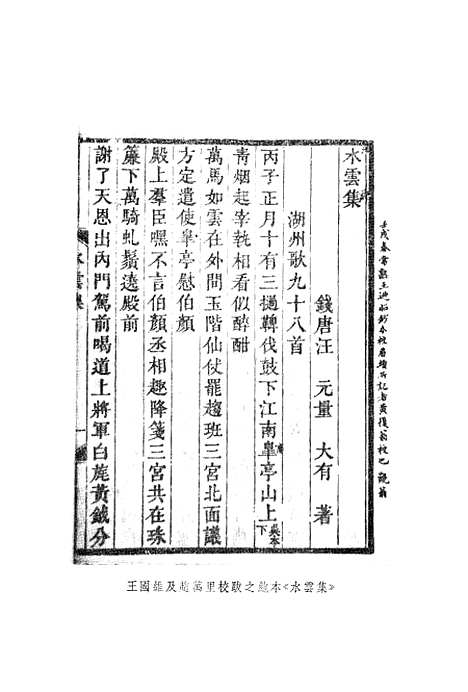 壬戌春常熟王鈔本校
水雲集
錢唐汪 元量 大有 著
湖州歌九十八首
丙子正月十有三撾鞞伐鼓下江南臯亭山上吳本下
青烟起宰執相看似醉酣
萬馬如雲在外間玉階仙仗罷趨班三宮北面議
方定遣使臯亭慰伯顏
殿上羣臣嘿不言伯顏丞相趣降箋三宮共在珠
簾下萬騎虬鬚遶殿前
謝了天恩出內門駕前喝道上將軍白旄黃鉞分
水雲集
一
王國維及趙萬里校跋之本《水雲集》